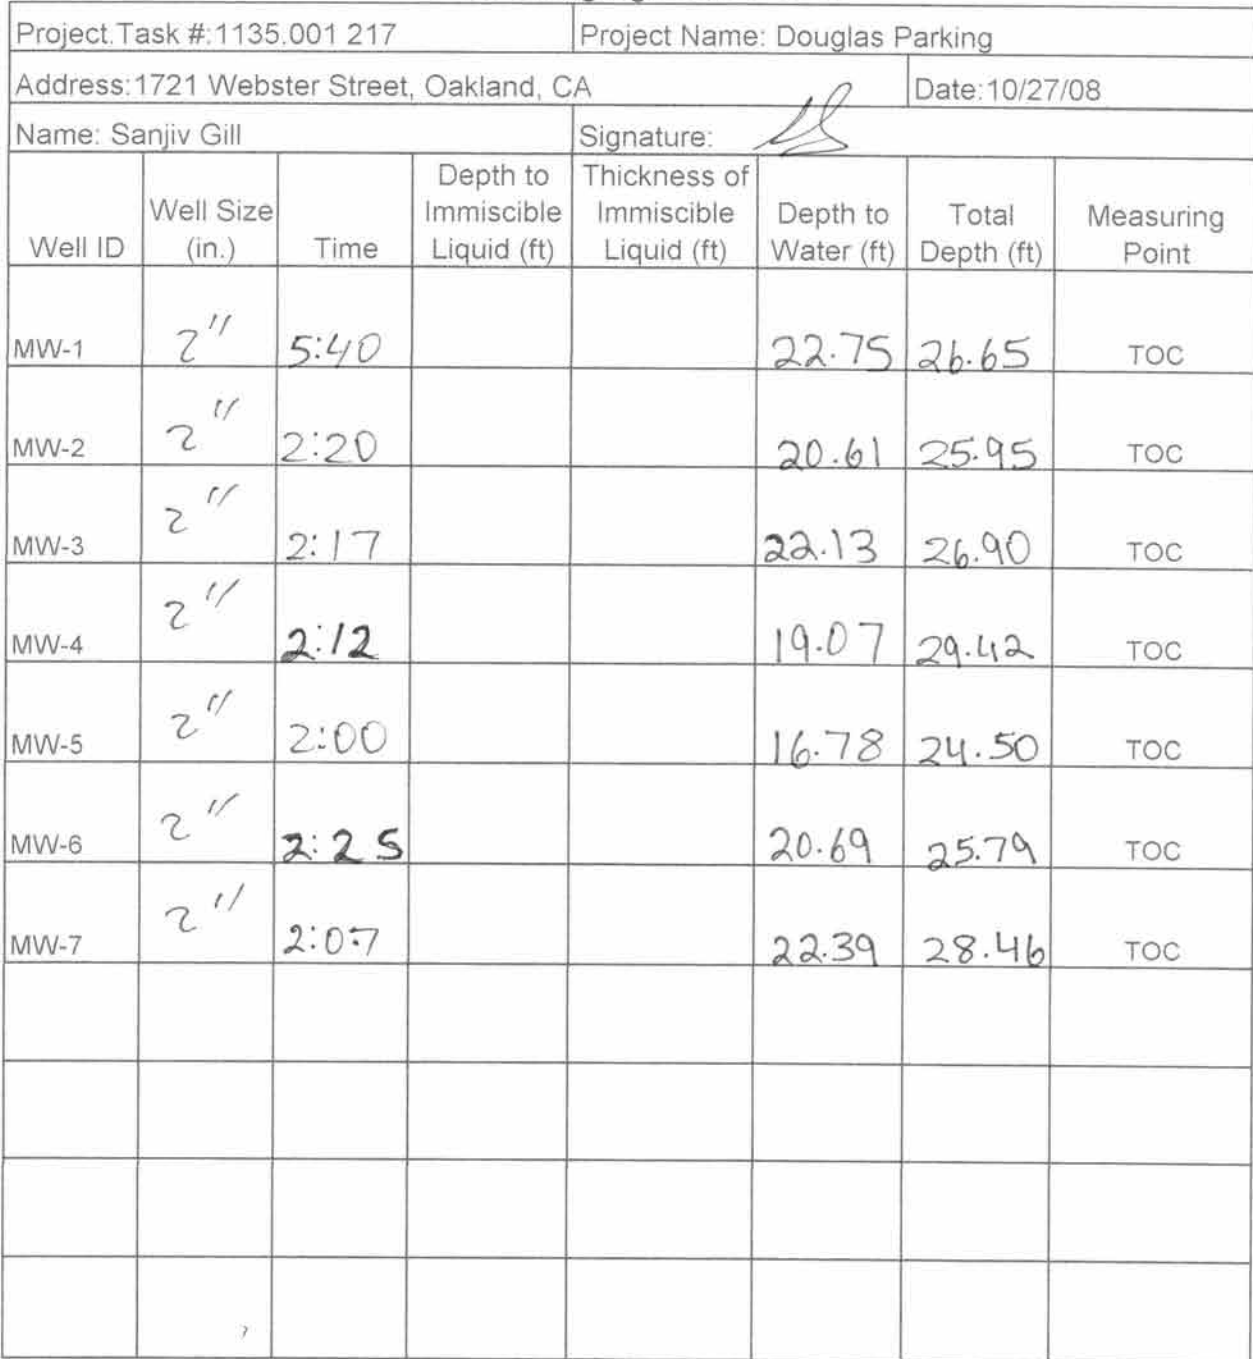 Project.Task #:1135.001 217 Project Name: Douglas Parking
Address:1721 Webster Street, Oakland, CA Date:10/27/08
Name: Sanjiv Gill Signature:
Well ID Well Size (in.) Time Depth to Immiscible Liquid (ft) Thickness of Immiscible Liquid (ft) Depth to Water (ft) Total Depth (ft) Measuring Point
MW-1 2" 5:40 22.75 26.65 TOC
MW-2 2" 2:20 20.61 25.95 TOC
MW-3 2" 2:17 22.13 26.90 TOC
MW-4 2" 2:12 19.07 29.42 TOC
MW-5 2" 2:00 16.78 24.50 TOC
MW-6 2" 2:25 20.69 25.79 TOC
MW-7 2" 2:07 22.39 28.46 TOC